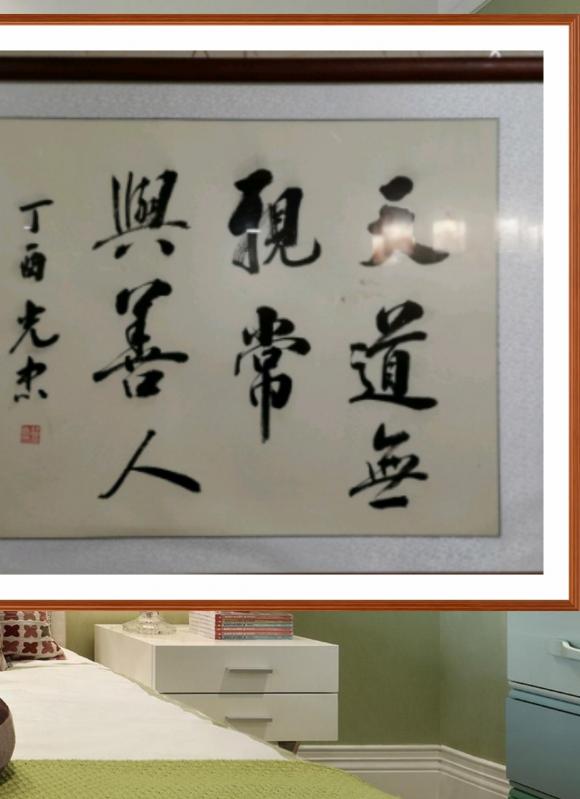 天道無
親常
與善人
丁酉光忠